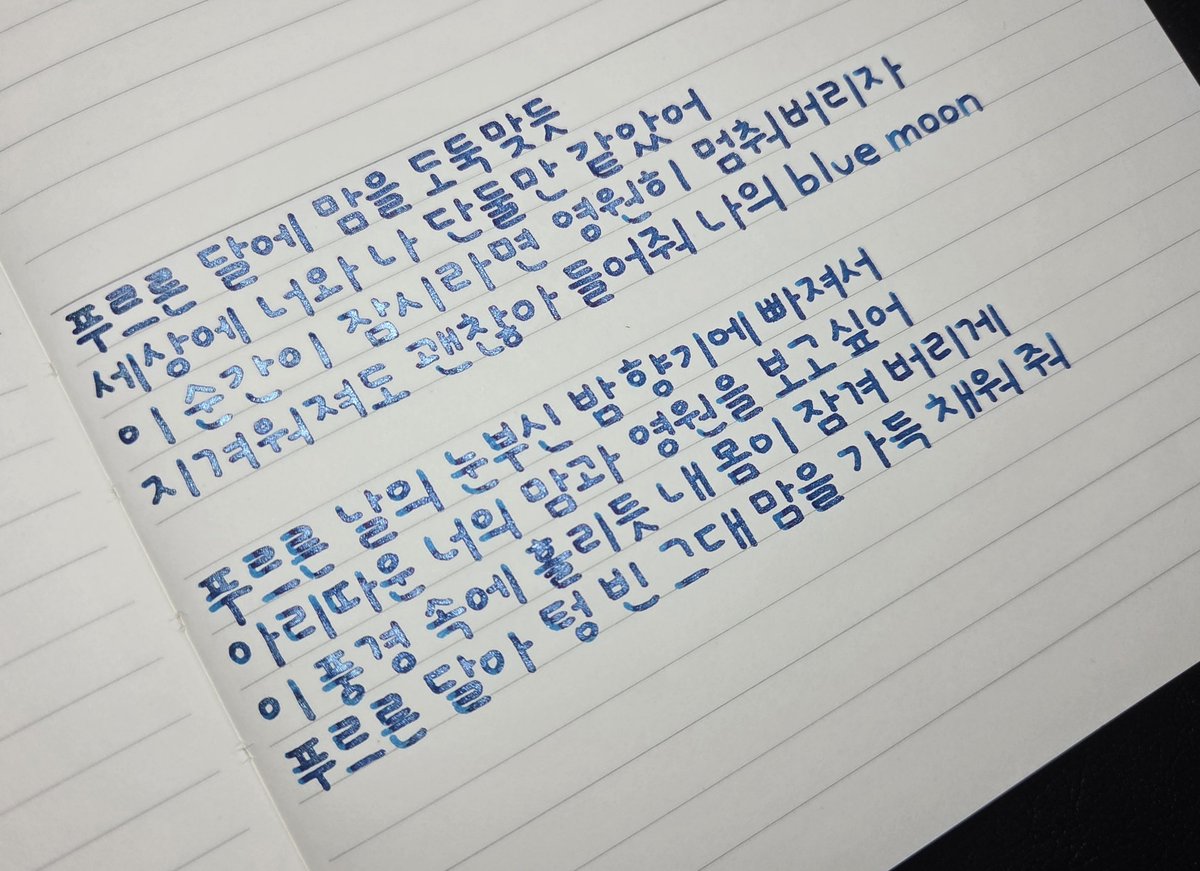 푸르른 달에 맘을 도둑맞듯
세상에 너와 나 단둘만 같았어
이 순간이 잠시라면 영원히 멈춰버리자
지겨워져도 괜찮아 들어줘 나의 blue moon
푸르른 날의 눈부신 밤 향기에 빠져서
아리따운 너의 맘과 영원을 보고 싶어
이 풍경 속에 홀리듯 내 몸이 잠겨 버리게
푸르른 달아 텅 빈 그대 맘을 가득 채워 줘